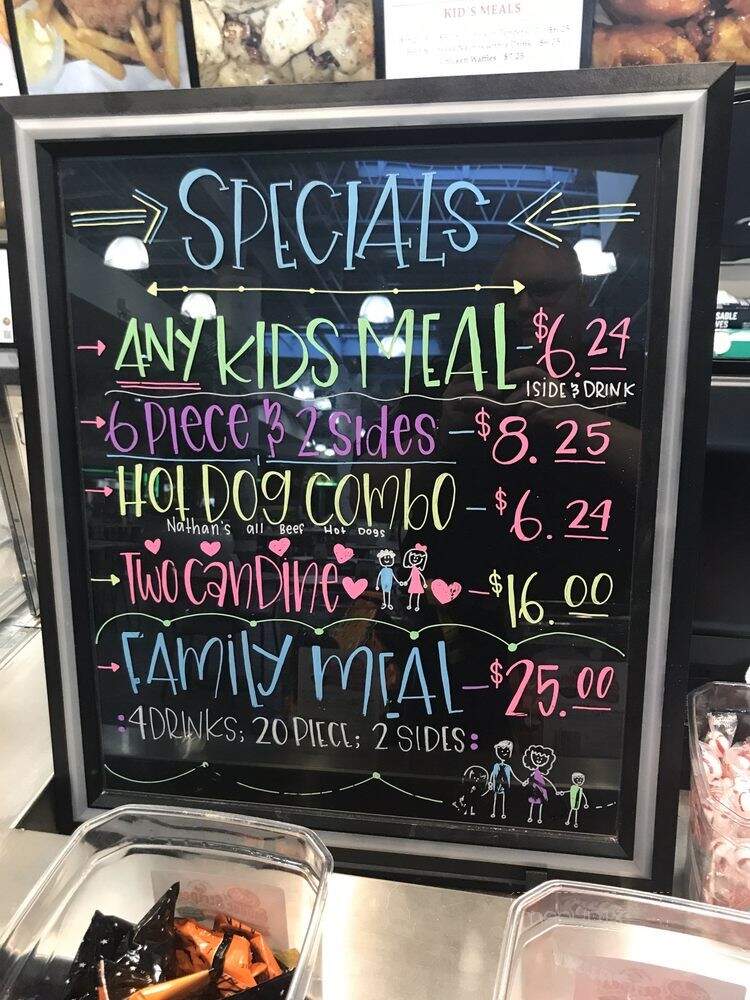 KID'S MEALS
Chicken Waffles $7.25
SPECIALS
ANY KIDS MEAL - $6.24
1 SIDE & DRINK
6 PIECE & 2 sides - $8.25
HOT DOG COMBO - $6.24
Nathan's all Beef Hot Dogs
TWO CAN DINE - $16.00
FAMILY MEAL - $25.00
: 4 DRINKS; 20 PIECE; 2 SIDES:
SABLE
VES